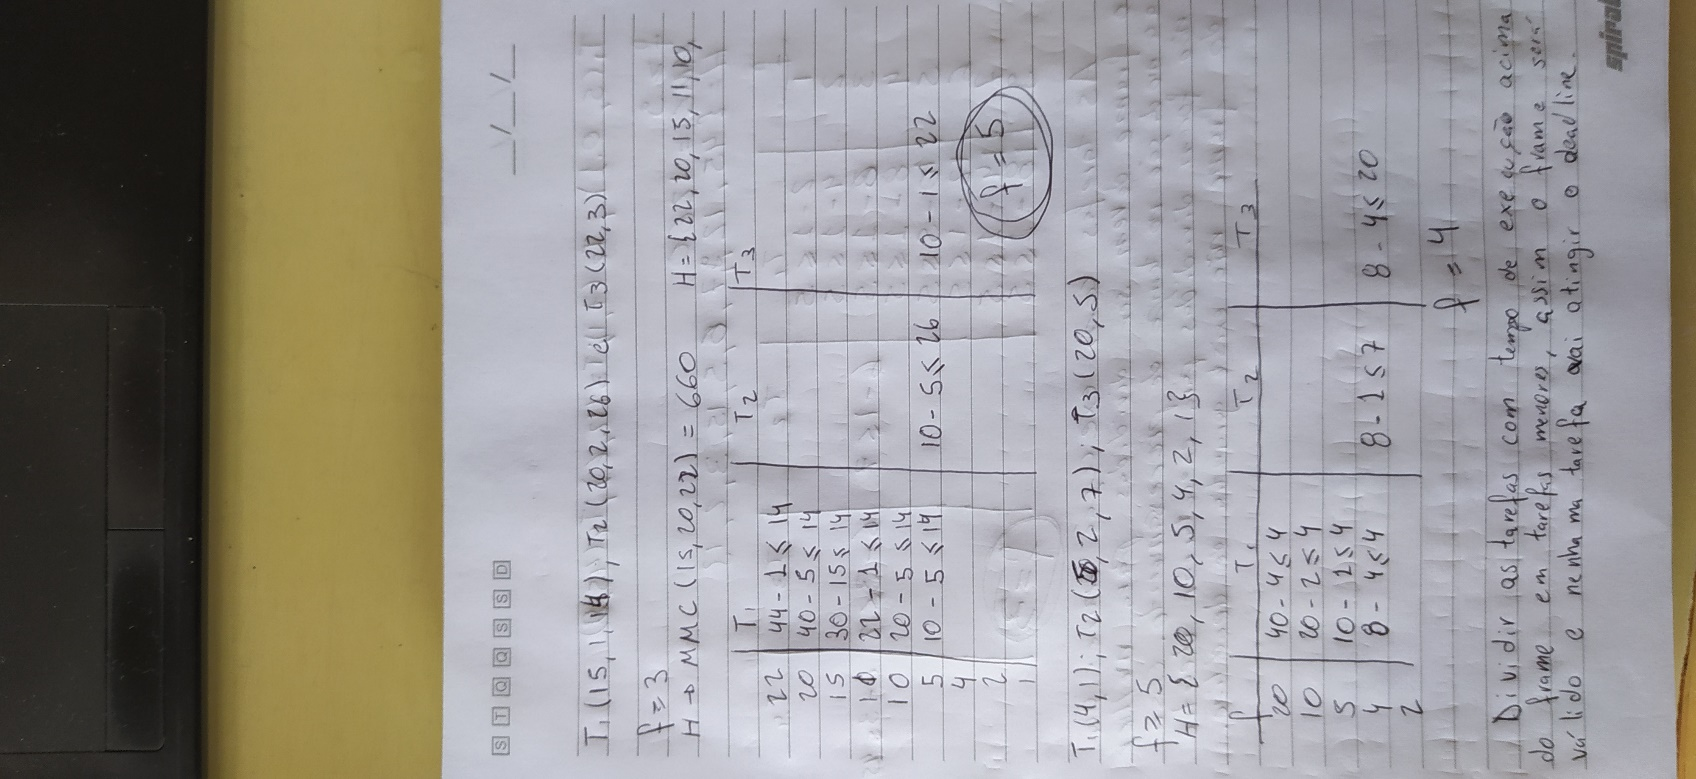 S T Q Q S S D
__/__/__
T1 (15, 1, 14); T2 (20, 2, 26) e T3 (22, 3)
f ≥ 3
H → MMC (15, 20, 22) = 660 H = {22, 20, 15, 11, 10,
T1 T2 T3
22 44 - 1 ≤ 14
20 40 - 5 ≤ 14
15 30 - 15 ≤ 14
11 22 - 1 ≤ 14
10 20 - 5 ≤ 14
5 10 - 5 ≤ 14 10 - 5 ≤ 26 10 - 1 ≤ 22
4
2 f = 5
1
T1 (4, 1); T2 (5, 2, 7); T3 (20, 5)
f ≥ 5
H = { 20, 10, 5, 4, 2, 1}
f T1 T2 T3
20 40 - 4 ≤ 4
10 20 - 2 ≤ 4
5 10 - 1 ≤ 4
4 8 - 4 ≤ 4 8 - 1 ≤ 7 8 - 4 ≤ 20
2
f = 4
Dividir as tarefas com tempo de execução acima
do frame em tarefas menores, assim o frame será
válido e nenhuma tarefa vai atingir o deadline.
spiral